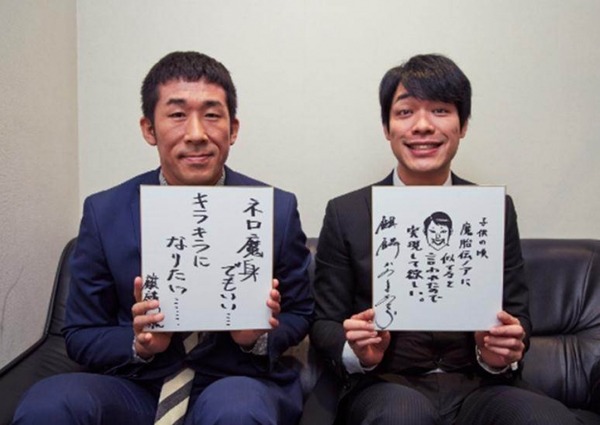 ネロ魔身
でもいい……
キラキラに
なりたい……
子供の頃
魔胎伝ノアに
似てると
言われたので
実現して欲しい。
麒麟